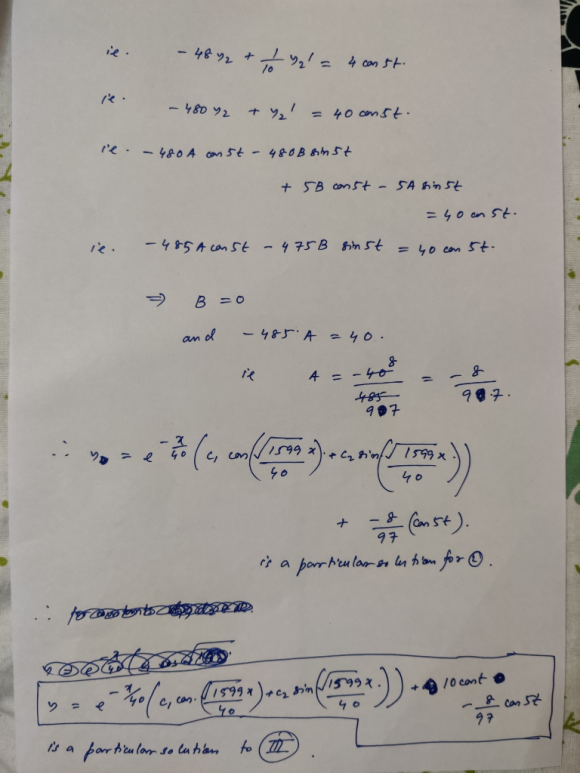 ie. - 48 y₂ + 1/10 y₂' = 4 cos 5t.
ie. - 480 y₂ + y₂' = 40 cos 5t.
ie. - 480A cos 5t - 480B sin 5t
+ 5B cos 5t - 5A sin 5t
= 40 cos 5t.
ie. - 485 A cos 5t - 475 B sin 5t = 40 cos 5t.
⇒ B = 0
and - 485 A = 40.
ie A = -40 8 / 485 97 = - 8/97.
∴ y = e^(-x/40) (c₁ cos(√1599 x/40) + c₂ sin(√1599 x/40))
+ -8/97 (cos 5t).
is a particular solution for ②.
∴
y = e^(-x/40) (c₁ cos(√1599 x/40) + c₂ sin(√1599 x/40)) + 10 cos t
- 8/97 cos 5t
is a particular solution to III.